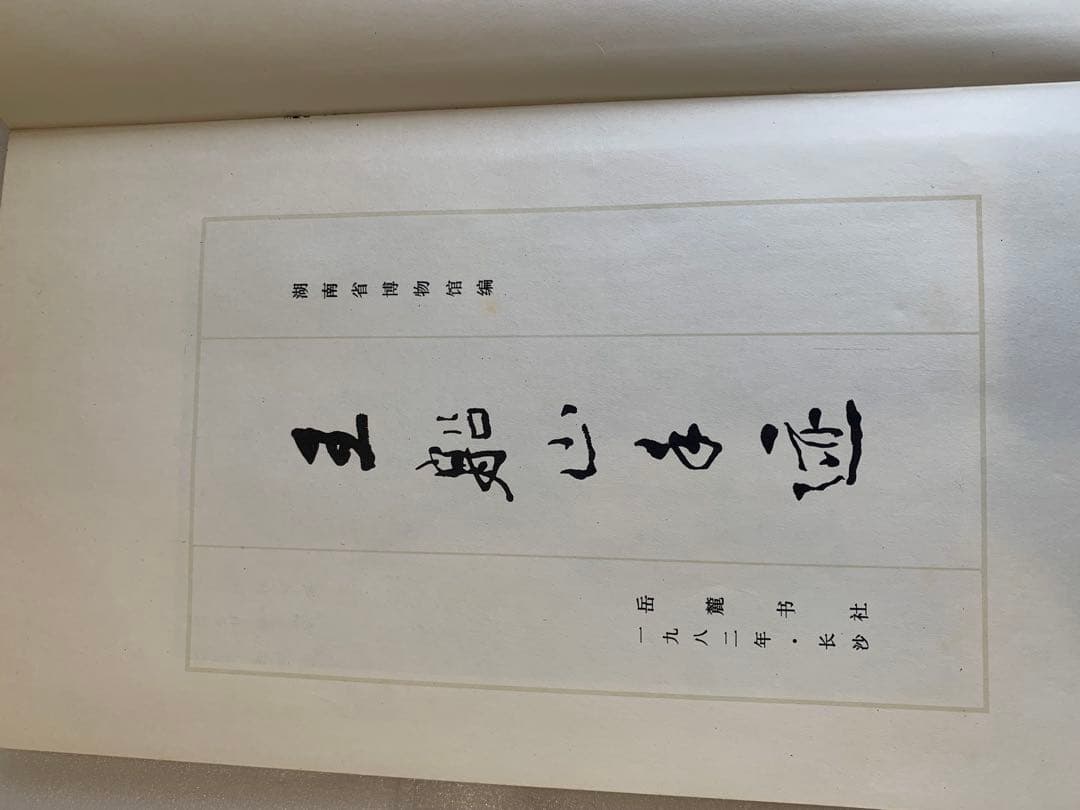 湖南省博物馆编
王船山手迹
岳麓书社
一九八二年·长沙